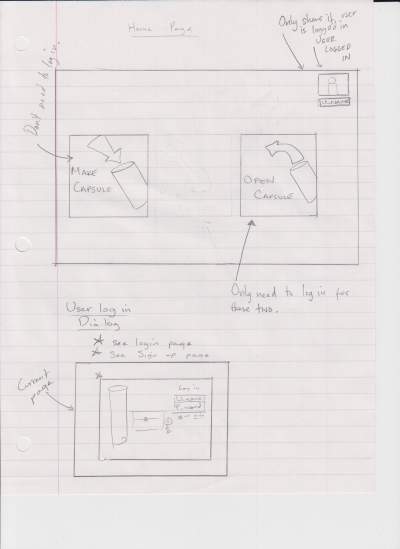 Home Page
Only shows if user
is logged in
USER
LOGGED
IN
Don't need to log in.
U.name
MAKE
CAPSULE
OPEN
CAPSULE
Only need to log in for
these two.
User log in
Dialog
* see login page
* See Sign up page
Current
page
Log in
U.name
P.word